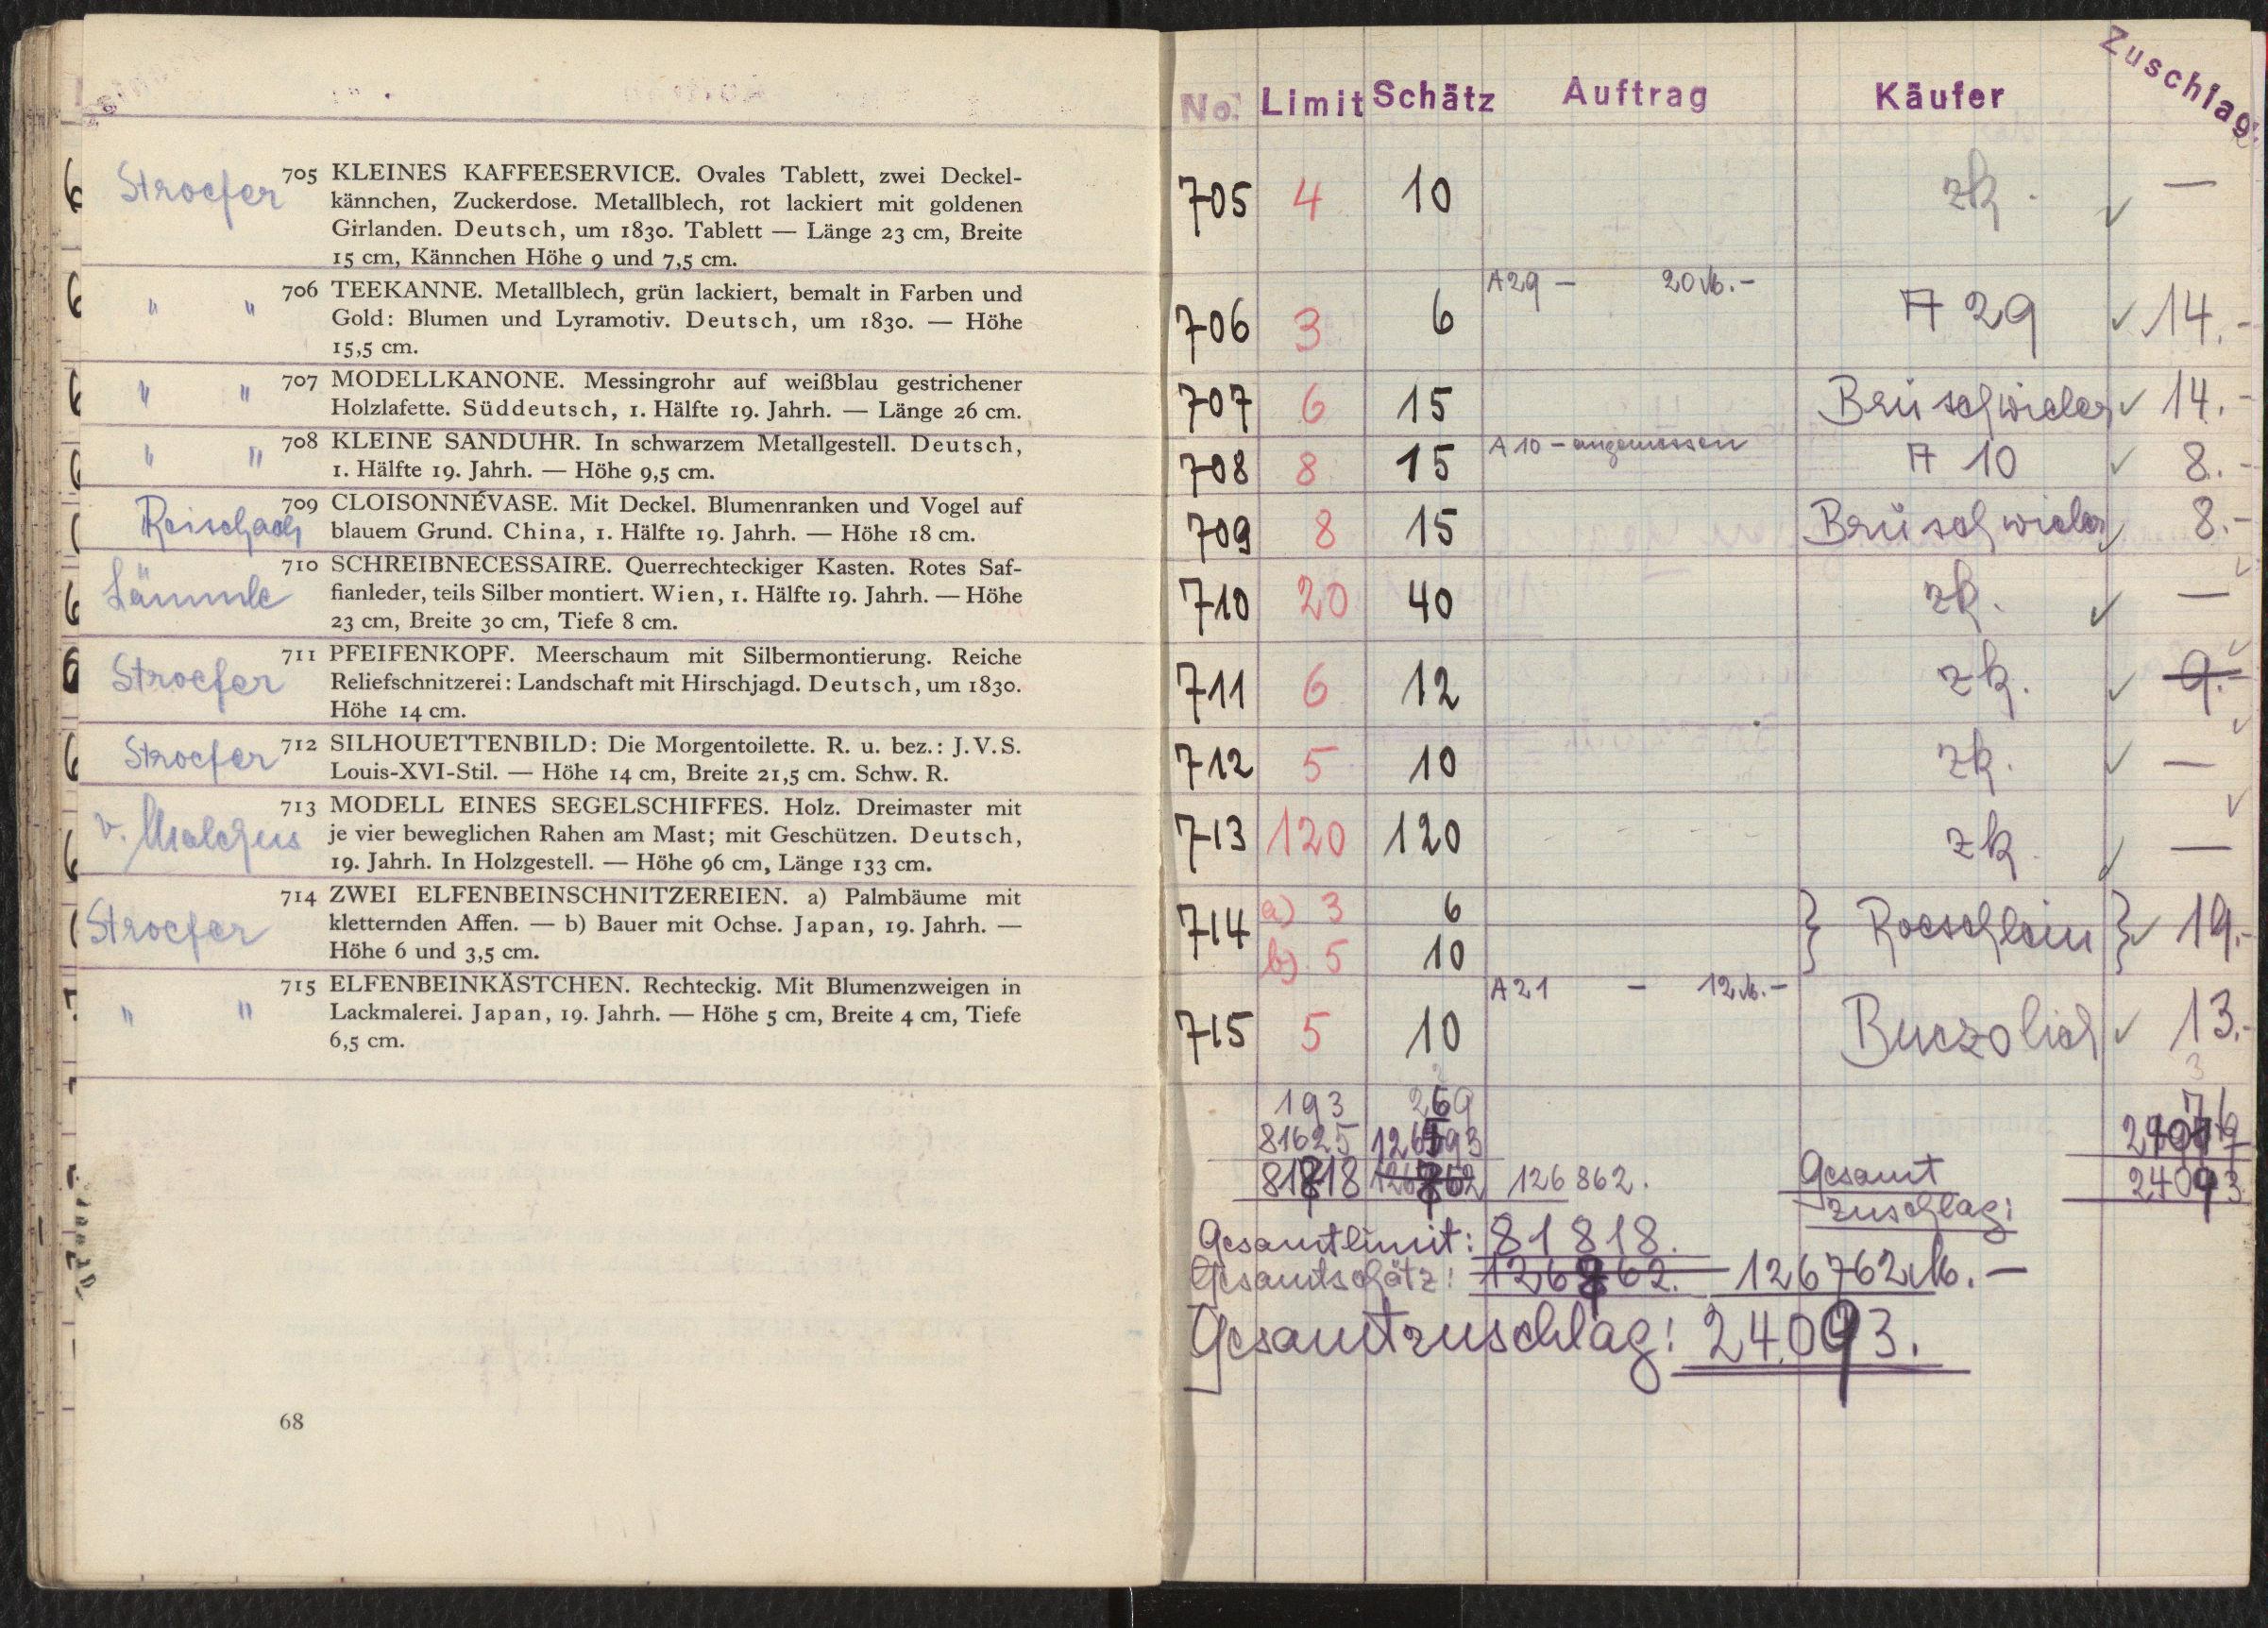 Stroefer
705 KLEINES KAFFEESERVICE. Ovales Tablett, zwei Deckel-
kännchen, Zuckerdose. Metallblech, rot lackiert mit goldenen
Girlanden. Deutsch, um 1830. Tablett — Länge 23 cm, Breite
15 cm, Kännchen Höhe 9 und 7,5 cm.
" " 706 TEEKANNE. Metallblech, grün lackiert, bemalt in Farben und
Gold: Blumen und Lyramotiv. Deutsch, um 1830. — Höhe
15,5 cm.
" " 707 MODELLKANONE. Messingrohr auf weißblau gestrichener
Holzlafette. Süddeutsch, 1. Hälfte 19. Jahrh. — Länge 26 cm.
" " 708 KLEINE SANDUHR. In schwarzem Metallgestell. Deutsch,
1. Hälfte 19. Jahrh. — Höhe 9,5 cm.
Reischach
709 CLOISONNÉVASE. Mit Deckel. Blumenranken und Vogel auf
blauem Grund. China, 1. Hälfte 19. Jahrh. — Höhe 18 cm.
Lämmle
710 SCHREIBNECESSAIRE. Querrechteckiger Kasten. Rotes Saf-
fianleder, teils Silber montiert. Wien, 1. Hälfte 19. Jahrh. — Höhe
23 cm, Breite 30 cm, Tiefe 8 cm.
Stroefer
711 PFEIFENKOPF. Meerschaum mit Silbermontierung. Reiche
Reliefschnitzerei: Landschaft mit Hirschjagd. Deutsch, um 1830.
Höhe 14 cm.
Stroefer
712 SILHOUETTENBILD: Die Morgentoilette. R. u. bez.: J. V. S.
Louis-XVI-Stil. — Höhe 14 cm, Breite 21,5 cm. Schw. R.
v. Malchus
713 MODELL EINES SEGELSCHIFFES. Holz. Dreimaster mit
je vier beweglichen Rahen am Mast; mit Geschützen. Deutsch,
19. Jahrh. In Holzgestell. — Höhe 96 cm, Länge 133 cm.
Stroefer
714 ZWEI ELFENBEINSCHNITZEREIEN. a) Palmbäume mit
kletternden Affen. — b) Bauer mit Ochse. Japan, 19. Jahrh. —
Höhe 6 und 3,5 cm.
" " 715 ELFENBEINKÄSTCHEN. Rechteckig. Mit Blumenzweigen in
Lackmalerei. Japan, 19. Jahrh. — Höhe 5 cm, Breite 4 cm, Tiefe
6,5 cm.
68
No. Limit Schätz Auftrag Käufer Zuschlag:
705 4 10 zk. ✓ —
A 29 — 20 M. —
706 3 6 A 29 ✓ 14.-
707 6 15 Brüschwieler ✓ 14.-
A 10 - angemessen
708 8 15 A 10 ✓ 8.-
709 8 15 Brüschwieler ✓ 8.-
710 20 40 zk. ✓ —
711 6 12 zk. ✓ 9.-
712 5 10 zk. ✓ —
713 120 120 zk. ✓ —
714 a) 3 6 } Roeschlein } ✓ 19.-
b) 5 10
A 21 — 12 M. —
715 5 10 Buczolich ✓ 13.-
193 269
81625
81818 126 862. Gesamt 24093
zuschlag:
Gesamtlimit: 81 818.
Gesamtschätz: 126762 M. —
Gesamtzuschlag: 24.093.